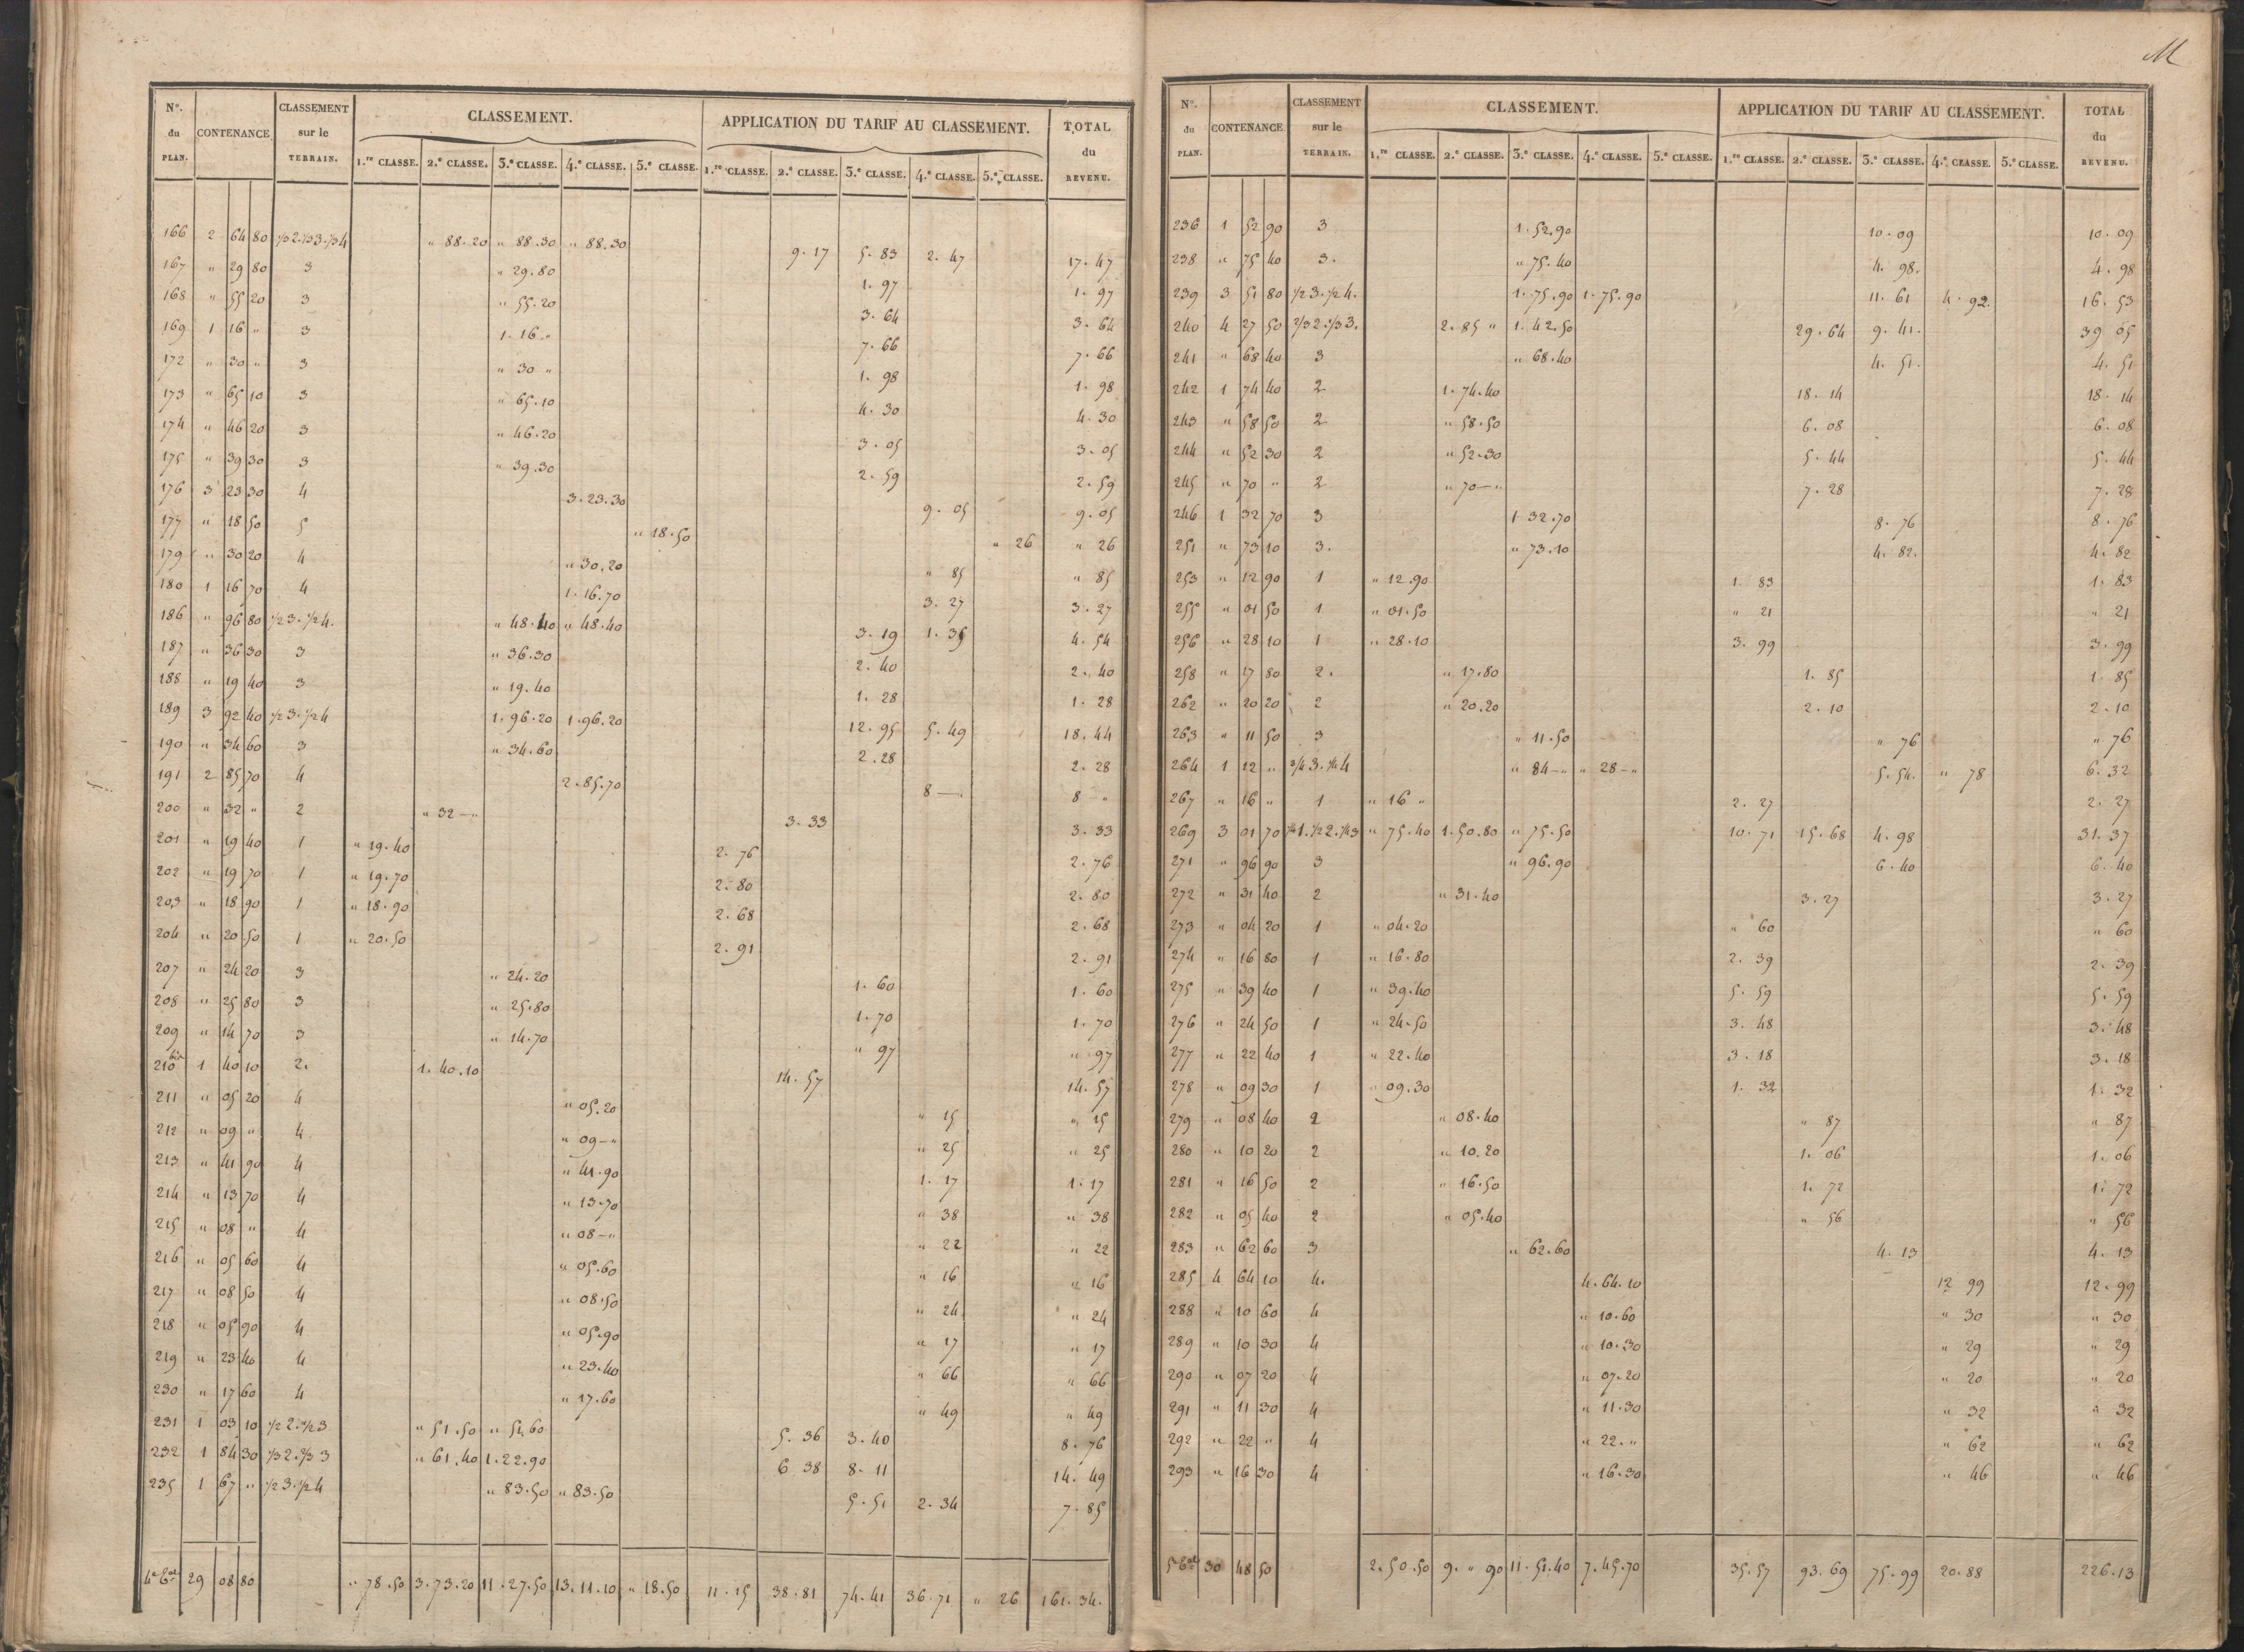 M
N.o du PLAN. CONTENANCE CLASSEMENT sur le TERRAIN. CLASSEMENT. APPLICATION DU TARIF AU CLASSEMENT. TOTAL du REVENU.
1.re CLASSE. 2.e CLASSE. 3.e CLASSE. 4.e CLASSE. 5.e CLASSE. 1.re CLASSE. 2.e CLASSE. 3.e CLASSE. 4.e CLASSE. 5.e CLASSE.
166 2 64 80 1/3 2. 1/3 3. 1/3 4 " 88.20 " 88.30 " 88.30 9.17 5.83 2.47 17.47
167 " 29 80 3 " 29.80 1.97 1.97
168 " 55 20 3 " 55.20 3.64 3.64
169 1 16 " 3 1.16 " 7.66 7.66
172 " 30 " 3 " 30 " 1.98 1.98
173 " 65 10 3 " 65.10 4.30 4.30
174 " 46 20 3 " 46.20 3.05 3.05
175 " 39 30 3 " 39.30 2.59 2.59
176 3 23 30 4 3.23.30 9.05 9.05
177 " 18 50 5 " 18.50 " 26 " 26
179 " 30 20 4 " 30.20 " 85 " 85
180 1 16 70 4 1.16.70 3.27 3.27
186 " 96 80 1/2 3. 1/2 4. " 48.40 " 48.40 3.19 1.35 4.54
187 " 36 30 3 " 36.30 2.40 2.40
188 " 19 40 3 " 19.40 1.28 1.28
189 3 92 40 1/2 3. 1/2 4 1.96.20 1.96.20 12.95 5.49 18.44
190 " 34 60 3 " 34.60 2.28 2.28
191 2 85 70 4 2.85.70 8 — 8 "
200 " 32 " 2 " 32 — " 3.33 3.33
201 " 19 40 1 " 19.40 2.76 2.76
202 " 19 70 1 " 19.70 2.80 2.80
203 " 18 90 1 " 18.90 2.68 2.68
204 " 20 50 1 " 20.50 2.91 2.91
207 " 24 20 3 " 24.20 1.60 1.60
208 " 25 80 3 " 25.80 1.70 1.70
209 " 14 70 3 " 14.70 " 97 " 97
210 bis 1 40 10 2. 1.40.10 14.57 14.57
211 " 05 20 4 " 05.20 " 15 " 15
212 " 09 " 4 " 09 — " " 25 " 25
213 " 41 90 4 " 41.90 1.17 1.17
214 " 13 70 4 " 13.70 " 38 " 38
215 " 08 " 4 " 08 — " " 22 " 22
216 " 05 60 4 " 05.60 " 16 " 16
217 " 08 50 4 " 08.50 " 24 " 24
218 " 05 90 4 " 05.90 " 17 " 17
219 " 23 40 4 " 23.40 " 66 " 66
230 " 17 60 4 " 17.60 " 49 " 49
231 1 03 10 1/2 2. 1/2 3 " 51.50 " 51.60 5.36 3.40 8.76
232 1 84 30 1/3 2. 2/3 3 " 61.40 1.22.90 6 38 8.11 14.49
235 1 67 " 1/2 3. 1/2 4 " 83.50 " 83.50 5.51 2.34 7.85
29 08 80 " 78.50 3.73.20 11.27.50 13.11.10 " 18.50 11.15 38.81 74.41 36.71 " 26 161.34.
N.o du PLAN. CONTENANCE CLASSEMENT sur le TERRAIN. CLASSEMENT. APPLICATION DU TARIF AU CLASSEMENT. TOTAL du REVENU.
1.re CLASSE. 2.e CLASSE. 3.e CLASSE. 4.e CLASSE. 5.e CLASSE. 1.re CLASSE. 2.e CLASSE. 3.e CLASSE. 4.e CLASSE. 5.e CLASSE.
236 1 52 90 3 1.52.90 10.09 10.09
238 " 75 40 3. " 75.40 4.98. 4.98
239 3 51 80 1/2 3. 1/2 4. 1.75.90 1.75.90 11.61 4.92. 16.53
240 4 27 50 2/3 2. 1/3 3. 2.85 " 1.42.50 29.64 9.41. 39 05
241 " 68 40 3 " 68.40 4.51. 4.51
242 1 74 40 2 1.74.40 18.14 18.14
243 " 58 50 2 " 58.50 6.08 6.08
244 " 52 30 2 " 52.30 5.44 5.44
245 " 70 " 2 " 70 — " 7.28 7.28
246 1 32 70 3 1 32.70 8.76 8.76
251 " 73 10 3. " 73.10 4.82. 4.82
253 " 12 90 1 " 12.90 1.83 1.83
255 " 01 50 1 " 01.50 " 21 " 21
256 " 28 10 1 " 28.10 3.99 3.99
258 " 17 80 2. " 17.80 1.85 1.85
262 " 20 20 2 " 20.20 2.10 2.10
263 " 11 50 3 " 11.50 " 76 " 76
264 1 12 " 3/4 3. 1/4 4 " 84 — " " 28 — " 5.54. " 78 6.32
267 " 16 " 1 " 16 " 2.27 2.27
269 3 01 70 1/4 1. 1/2 2. 1/4 3 " 75.40 1.50.80 " 75.50 10.71 15.68 4.98 31.37
271 " 96 90 3 " 96.90 6.40 6.40
272 " 31 40 2 " 31.40 3.27 3.27
273 " 04 20 1 " 04.20 " 60 " 60
274 " 16 80 1 " 16.80 2.39 2.39
275 " 39 40 1 " 39.40 5.59 5.59
276 " 24 50 1 " 24.50 3.48 3.48
277 " 22 40 1 " 22.40 3.18 3.18
278 " 09 30 1 " 09.30 1.32 1.32
279 " 08 40 2 " 08.40 " 87 " 87
280 " 10 20 2 " 10.20 1.06 1.06
281 " 16 50 2 " 16.50 1.72 1.72
282 " 05 40 2 " 05.40 " 56 " 56
283 " 62 60 3 " 62.60 4.13 4.13
285 4 64 10 4. 4.64.10 12 99 12.99
288 " 10 60 4 " 10.60 " 30 " 30
289 " 10 30 4 " 10.30 " 29 " 29
290 " 07 20 4 " 07.20 " 20 " 20
291 " 11 30 4 " 11.30 " 32 " 32
292 " 22 " 4 " 22. " " 62 " 62
293 " 16 30 4 " 16.30 " 46 " 46
30 48 50 2.50.50 9. " 90 11.51.40 7.45.70 35.57 93.69 75.99 20.88 226.13